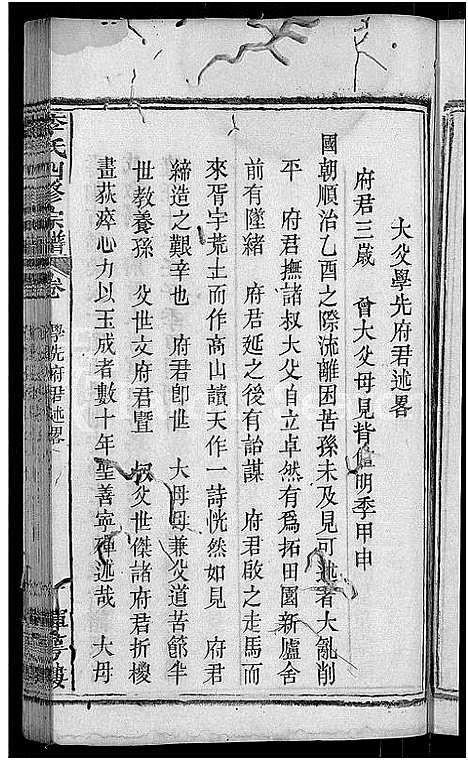 大父學先府君述畧
府君三歲 曾大父母見背值明季甲申
國朝順治乙酉之際流離困苦孫未及見可述者大亂削
平 府君撫諸叔大父自立卓然有爲拓田園新廬舍
前有墜緒 府君延之後有詒謀 府君啟之走馬而
來胥宇荒土而作高山讀天作一詩恍然如見 府君
締造之艱辛也 府君卽世 大母母兼父道苦節半
世教養孫 父世文府君曁 叔父世傑諸府君折㯶
畫荻瘁心力以玉成者數十年聖善寧殫述哉 大母
李氏四修宗譜 卷 學先府君述畧 一